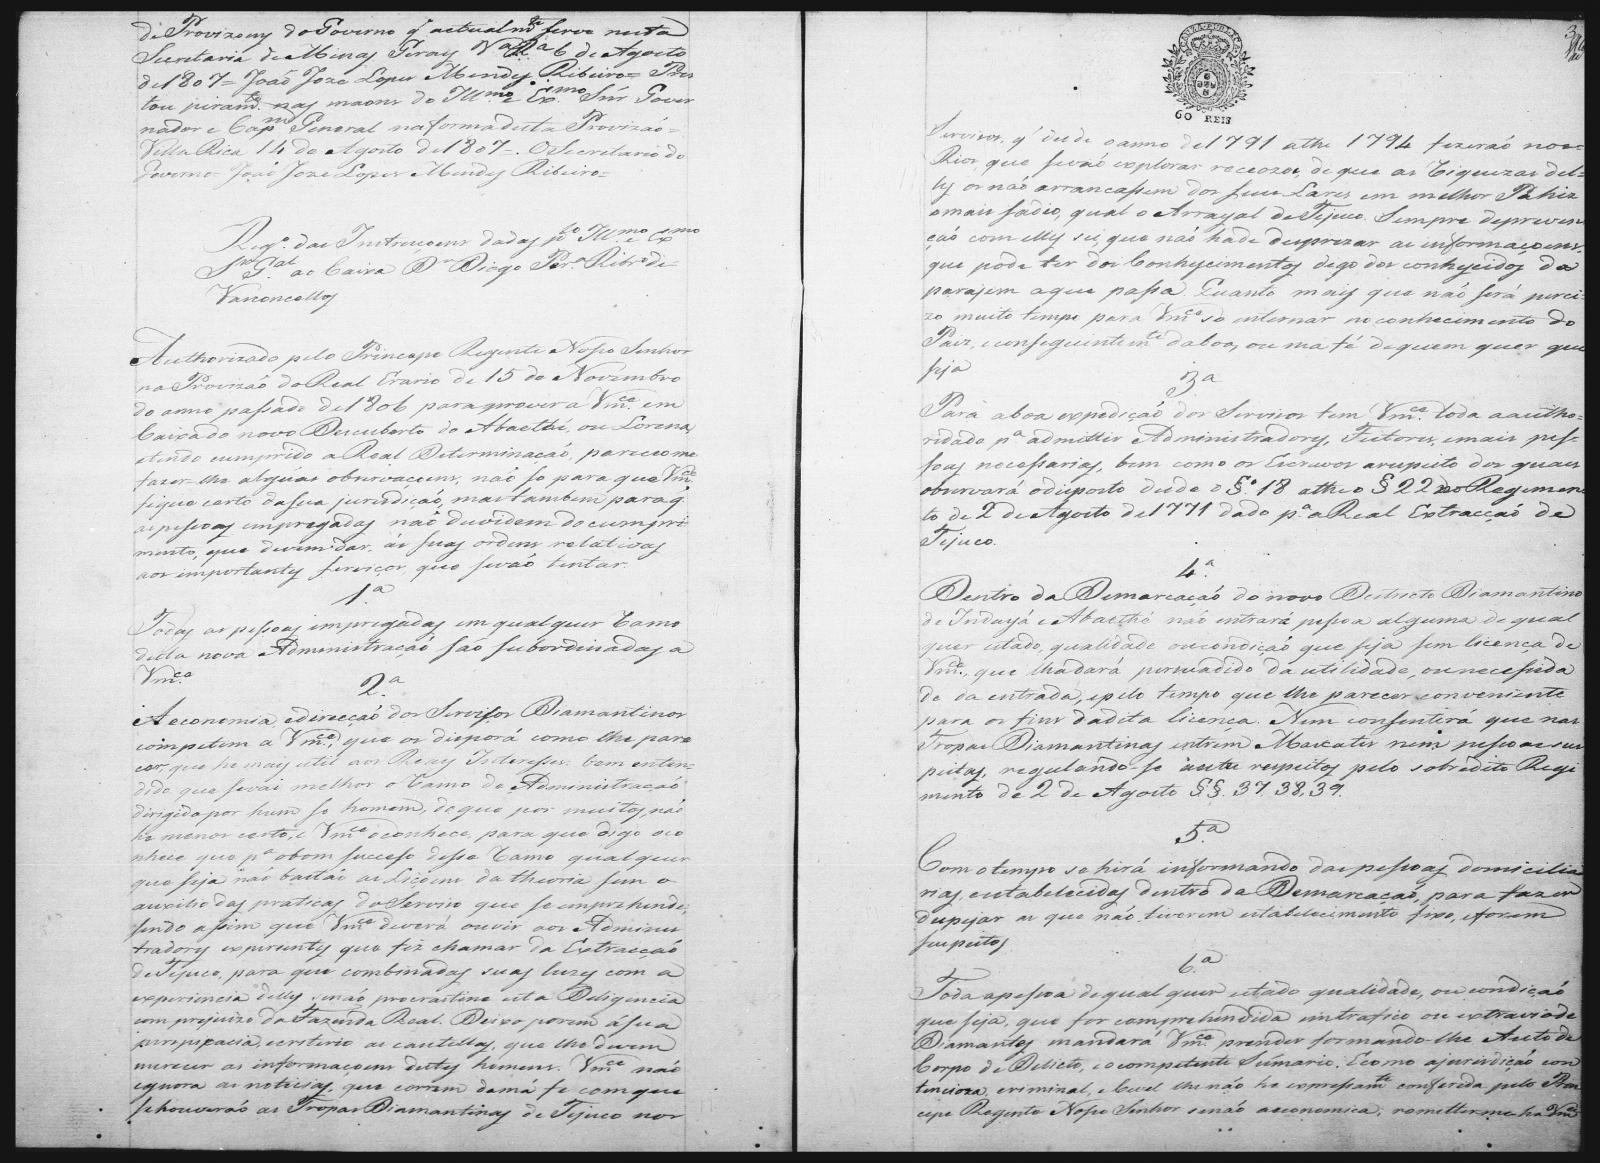 de Provizoens do Governo q' actualm.te serve nesta
Secretaria de Minas Geraes V.a R.a 6 de Agosto
de 1807= João Joze Lopes Mendes Ribeiro= Pres
tou juram.to nas maons do Ill.mo e Ex.mo Snr Gover
nador e Cap.m General na forma desta Provizão=
Villa Rica 14 de Agosto de 1807=. O Secretario do
Governo= João Joze Lopes Mendes Ribeiro=
Reg.o das Instrucoens dadas p.lo Ill.mo e Ex.mo
Sr G.al ao Caixa D.r Diogo Per.a Ribr.o de
Vasconcellos
Authorizado pelo Principe Regente Nosso Senhor
na Provizão do Real Erario de 15 de Novembro
do anno passado de 1806 para prover a Vm.ce em
Caixa do novo Descuberto do Abaethé, ou Lorena,
e tendo cumprido a Real Determinação, pareceo me
fazer-lhe alguas observacoens, não so para que Vm.ce
fique certo da sua jurisdição, mas tambem para q'
as pessoas empregadas não duvidem do cumpri
mento, que devem dar, ás suas ordens relativas
aos importantes serviços, que se vão tentar.
1.a
Todas as pessoas empregadas em qualquer Ramo
desta nova Administração são subordinadas a
Vm.ce
2.a
A economia, e direcção dos Servisos Diamantinos
competem a Vm.ce, que os disporá como lhe pare
cer, que he mais util aos Reaes Interesses: bem enten
dido que se vai melhor o Ramo de Administração
dirigida por hum so homem, do que por muitos, não
he menos certo, e Vm.ce o conhece, para que digo o co
nhece que p.a o bom sucesso desse Ramo qualquer
que seja não bastão as Liçoens da theoria sem o
auxilio das praticas do Serviso que se emprehende,
sendo assim que Vm.ce deverá ouvir aos Adminis
tradores expirentes que fiz chamar da Extracção
do Tejuco, para que combinadas suas luzes com a
experiencia delles senão procrastine esta Deligencia
com prejuizo da Fazenda Real. Deixo porem á sua
perspicacia, e criterio as cautellas, que lhe devem
merecer as informacoens destes homens. Vm.ce não
ignora as noticias, que correm da má fe com que
se houverão as Tropas Diamantinas do Tejuco nos
CAUZA PUBLICA
60 REIS
Servisos, q' desde o anno de 1791 athe 1794 fizerão nos
Rios, que se vão explorar receozos, de que as Riquezas del=
les os não arrancassem dos seus Lares em melhor Pahiz
e mais sadio, qual o Arrayal do Tejuco. Sempre de preven
ção com elles sei, que não hade desprezar as informaçoens,
que pode ter dos Conhecimentos dos conhecidos da
parajem a que passa. Quanto mais que não será perci=
zo muito tempo para Vm.ce se internar no conhecimento do
Paiz, e conseguintem.te da boa, ou má fé de quem quer que
seja
3.a
Para a boa expedição dos Servisos tem Vm.ce toda a autho=
ridade p.a admittir Administradores, Feitores, e mais pes-
soas necessarias, bem como os Escravos a respeito dos quais
observará o disposto desde o §.o 18 athe o § 22 do Regimen
to de 2 de Agosto de 1771 dado p.a a Real Extracção de
Tejuco.
4.a
Dentro da Demarcação do novo Destricto Diamantino
de Indayá e Abaethé não entrará pessoa alguma de qual
quer estado, qualidade ou condição que seja sem licença de
Vm.ce, que lha dará persuadido da utilidade, ou necessida
de da entrada, e pelo tempo que lhe parecer conveniente
para os fins da dita licença. Nem consentirá que nas
Tropas Diamantinas entrem Mascates nem pessoas sus
peitas, regulando-se a este respeito pelo sobredito Regi
mento de 2 de Agosto §.§. 37.38.39.
5.a
Com o tempo se hirá informando das pessoas domicilia
rias, e estabelecidas dentro da Demarcação, para fazer
despejar as que não tiverem estabelecimento fixo, e forem
suspeitos
6.a
Toda a pessoa de qualquer estado qualidade, ou condição
que seja, que for comprehendida em trafico ou extravio de
Diamantes mandará Vm.ce prender formando-lhe Auto de
Corpo de Delicto, e o competente Sumario. E como a jurisdição con
tencioza, criminal, e Civel lhe não he expressam.te conferida pelo Prin
cepe Regente Nosso Senhor senão a economica; rometter-me-ha Vm.ce